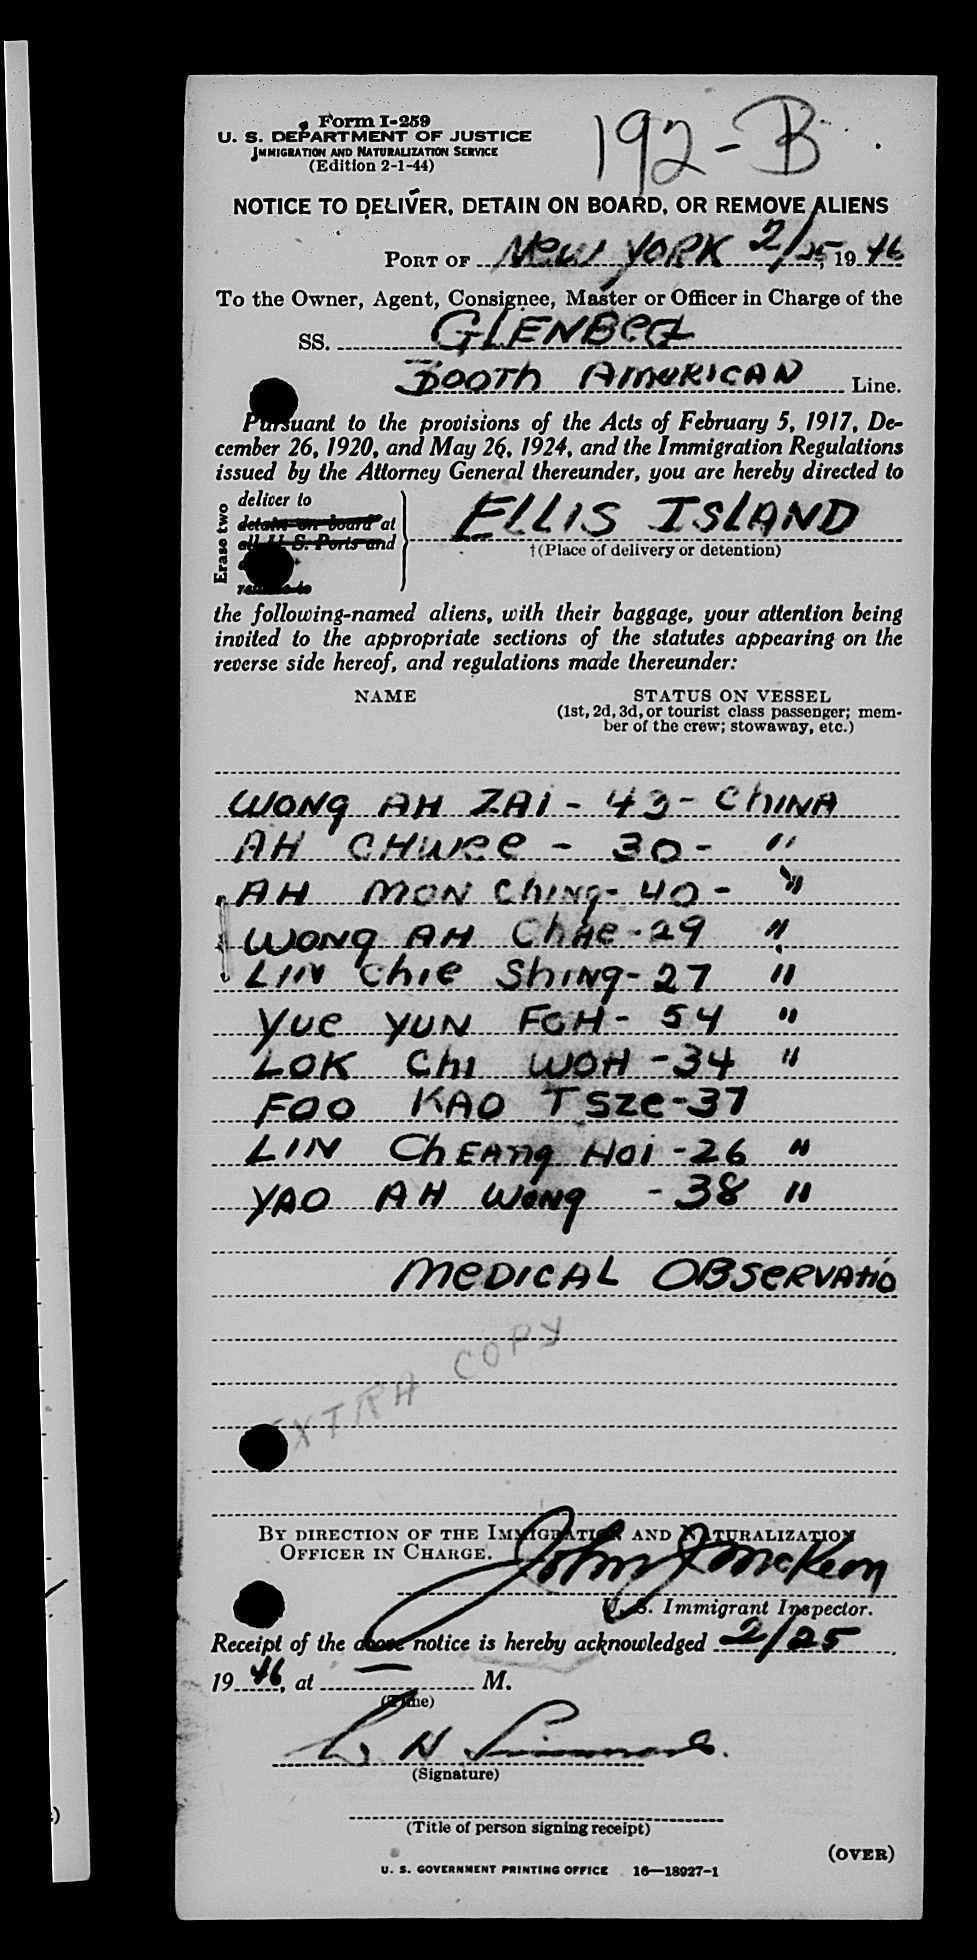 Form I-259
U. S. DEPARTMENT OF JUSTICE
IMMIGRATION AND NATURALIZATION SERVICE
(Edition 2-1-44)
192-B
NOTICE TO DELIVER, DETAIN ON BOARD, OR REMOVE ALIENS
PORT OF New York 2/25, 1946
To the Owner, Agent, Consignee, Master or Officer in Charge of the
SS. GLENBEG
Booth AMERICAN Line.
Pursuant to the provisions of the Acts of February 5, 1917, De-
cember 26, 1920, and May 26, 1924, and the Immigration Regulations
issued by the Attorney General thereunder, you are hereby directed to
Erase two
deliver to
detain on board at
all U. S. Ports and
remove to
ELLIS ISLAND
†(Place of delivery or detention)
the following-named aliens, with their baggage, your attention being
invited to the appropriate sections of the statutes appearing on the
reverse side hereof, and regulations made thereunder:
NAME STATUS ON VESSEL
(1st, 2d, 3d, or tourist class passenger; mem-
ber of the crew; stowaway, etc.)
WONG AH ZAI - 43 - CHINA
AH CHWEE - 30 - "
AH MON CHING - 40 - "
WONG AH CHAE - 29 "
LIN CHIE SHING - 27 "
YUE YUN FOH - 54 "
LOK CHI WOH - 34 "
FOO KAO TSZE - 37
LIN CHEANG HOI - 26 "
YAO AH WONG - 38 "
MEDICAL OBSERVATIO
EXTRA COPY
BY DIRECTION OF THE IMMIGRATION AND NATURALIZATION
OFFICER IN CHARGE.
John J McKeon
U. S. Immigrant Inspector.
Receipt of the above notice is hereby acknowledged 2/25
1946, at M.
(Time)
H
(Signature)
(Title of person signing receipt)
(OVER)
U. S. GOVERNMENT PRINTING OFFICE 16—18927-1